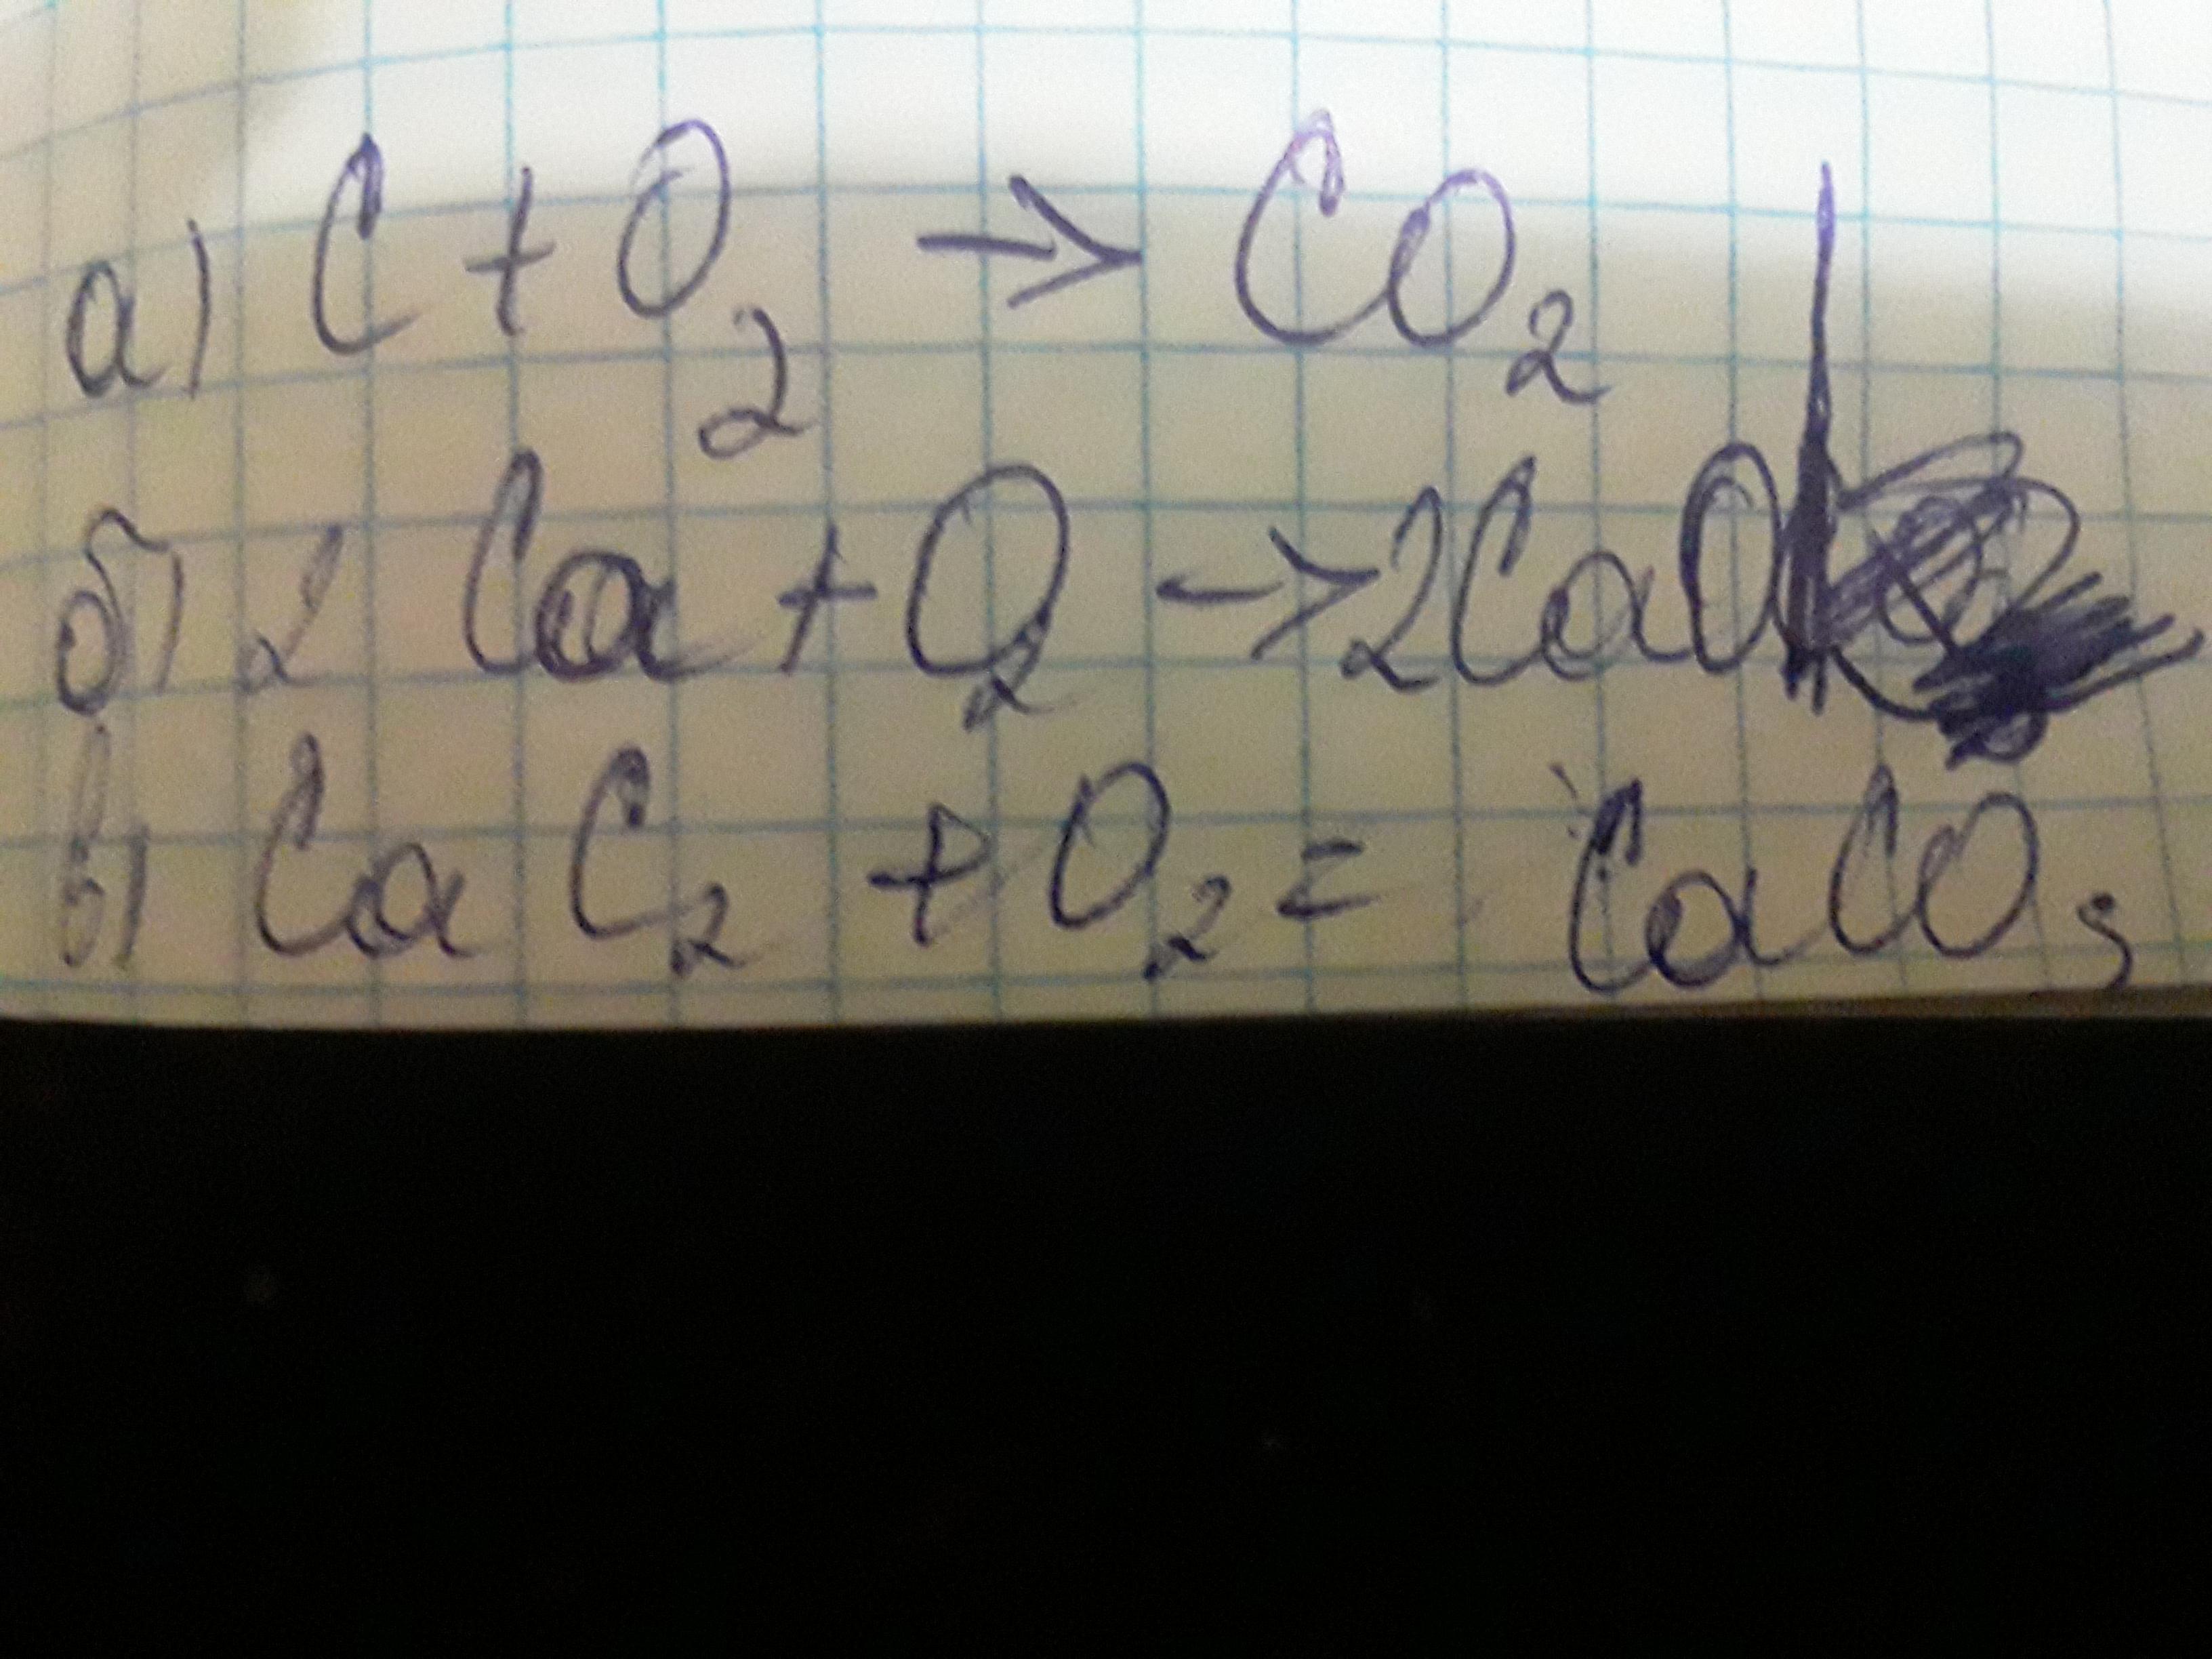 а) C + O₂ → CO₂
б) 2 Ca + O₂ → 2CaO
в) CaC₂ + O₂ = CaCO₃